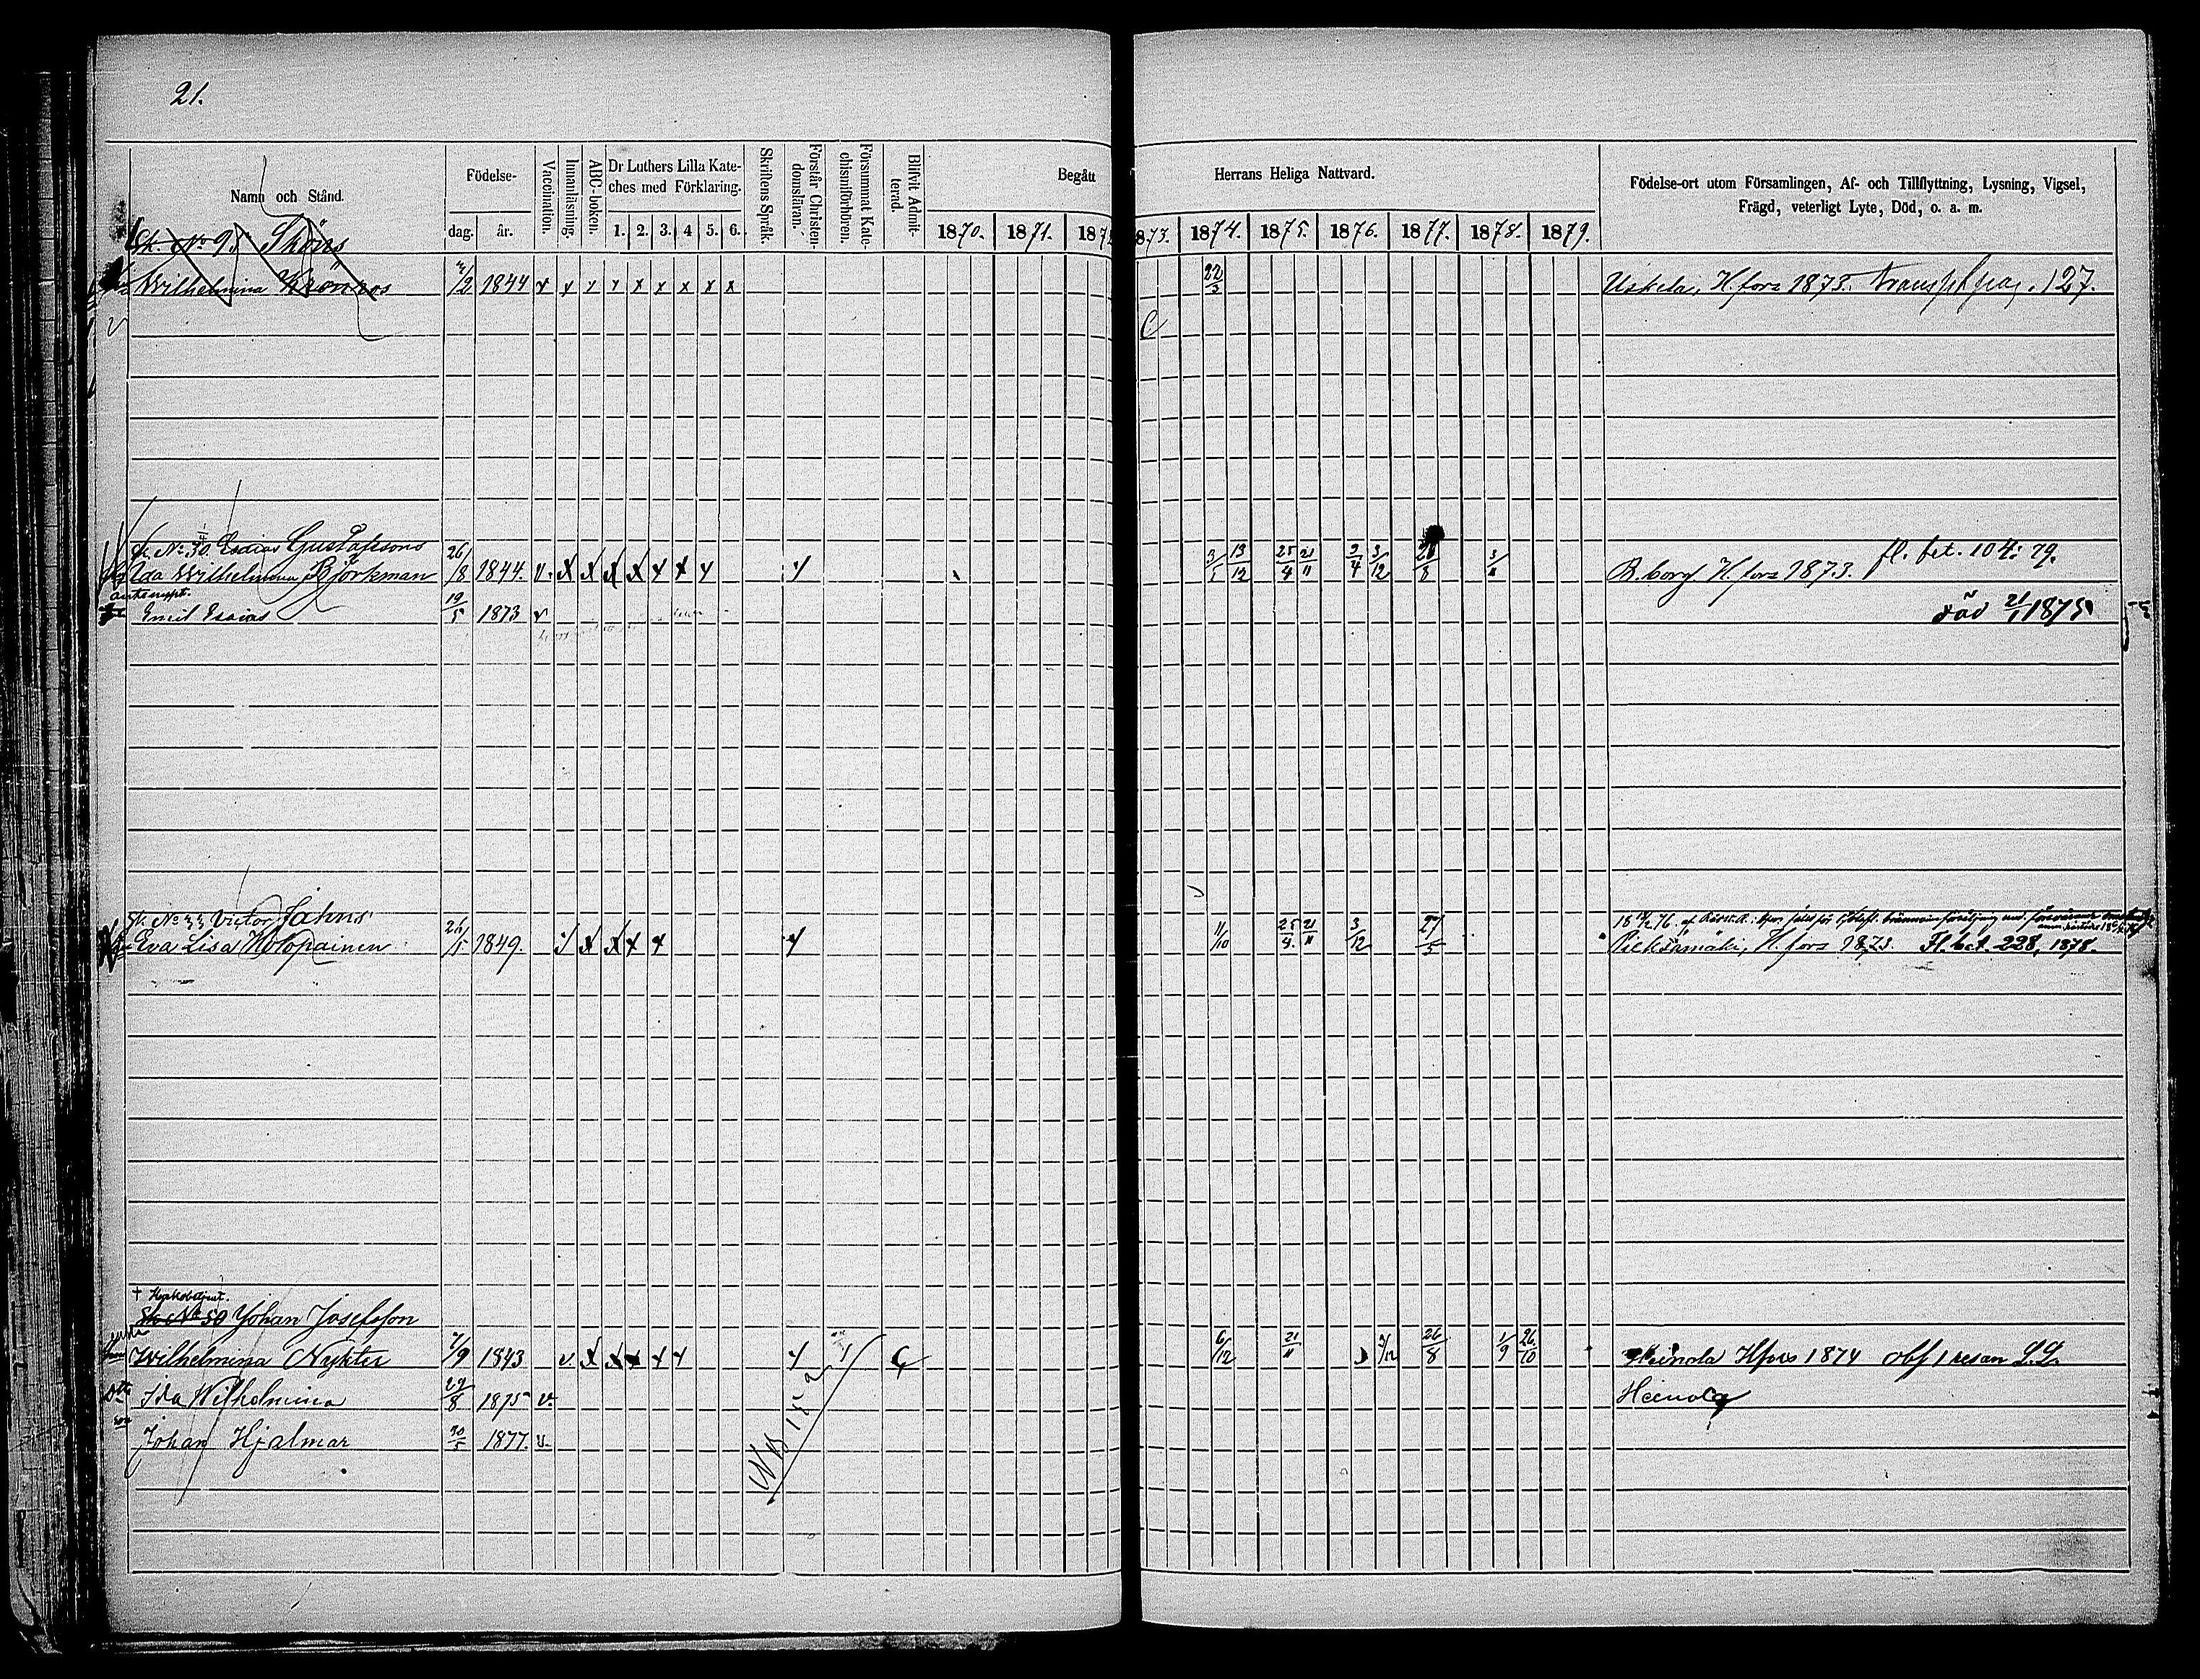 21.
Namn och Stånd.
Födelse-
dag. år.
Vaccination.
Innanläsning.
ABC-boken.
Dr Luthers Lilla Kate-
ches med Förklaring.
1. 2. 3. 4 5. 6.
Skriftens Språk.
Förstår Christen-
domsläran.
Försummat Kate-
chismiförhören.
Blifvit Admit-
terad.
Begått Herrans Heliga Nattvard.
1870. 1871. 1872 1873. 1874. 1875. 1876. 1877. 1878. 1879.
Födelse-ort utom Församlingen, Af- och Tillflyttning, Lysning, Vigsel,
Frägd, veterligt Lyte, Död, o. a. m.
Sk. No 9.
Wilhelmina 1844 x x x x x x x x x 22/3 Uskela, H.fors 1873. 127.
Sk. No 30. Esaias Gustafssons
Ida Wilhelmina Björkman 26/8 1844. 3/5 13/12 25/4 21/11 9/4 3/12 B.borg H.fors 1873. fl. bet. 104: 79.
Emil Esaias 19/5 1873 v död 21/1 1875
Victor Jahns
Eva Lisa Holopainen 26/5 1849. 11/10 25/4 21/11 3/12 27/5 Pieksämäki, H.fors 1873 Fl. bet. 228, 1878.
Sk No 50 Johan Josefsson
Wilhelmina Nykter 7/9 1843 v. 6/12 21/11 3/12 26/8 1/9 26/10 Heinola Hfors 1874
Ida Wilhelmina 29/8 1875 v. Heinola
son
Johan Hjalmar 30/5 1877. v.